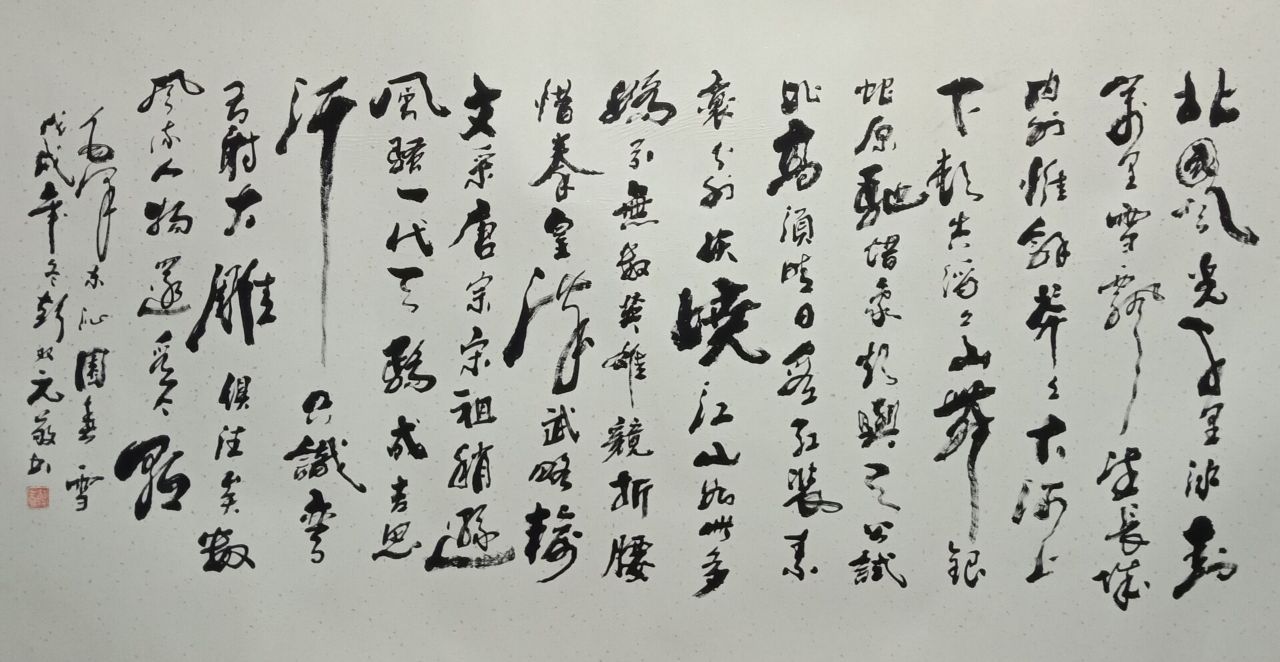 北國風光千里冰封
萬里雪飄望長城
内外惟餘莽々大河上
下頓失滔々山舞銀
蛇原馳蜡象欲與天公試
比高須晴日看紅裝素
裹分外妖嬈江山如此多
嬌引無數英雄競折腰
惜秦皇漢武略輸
文采唐宗宋祖稍遜
風騷一代天驕成吉思
汗只識彎
弓射大雕俱往矣數
風流人物還看今朝
毛澤東沁園春雪
戊戌年冬彭元敬书